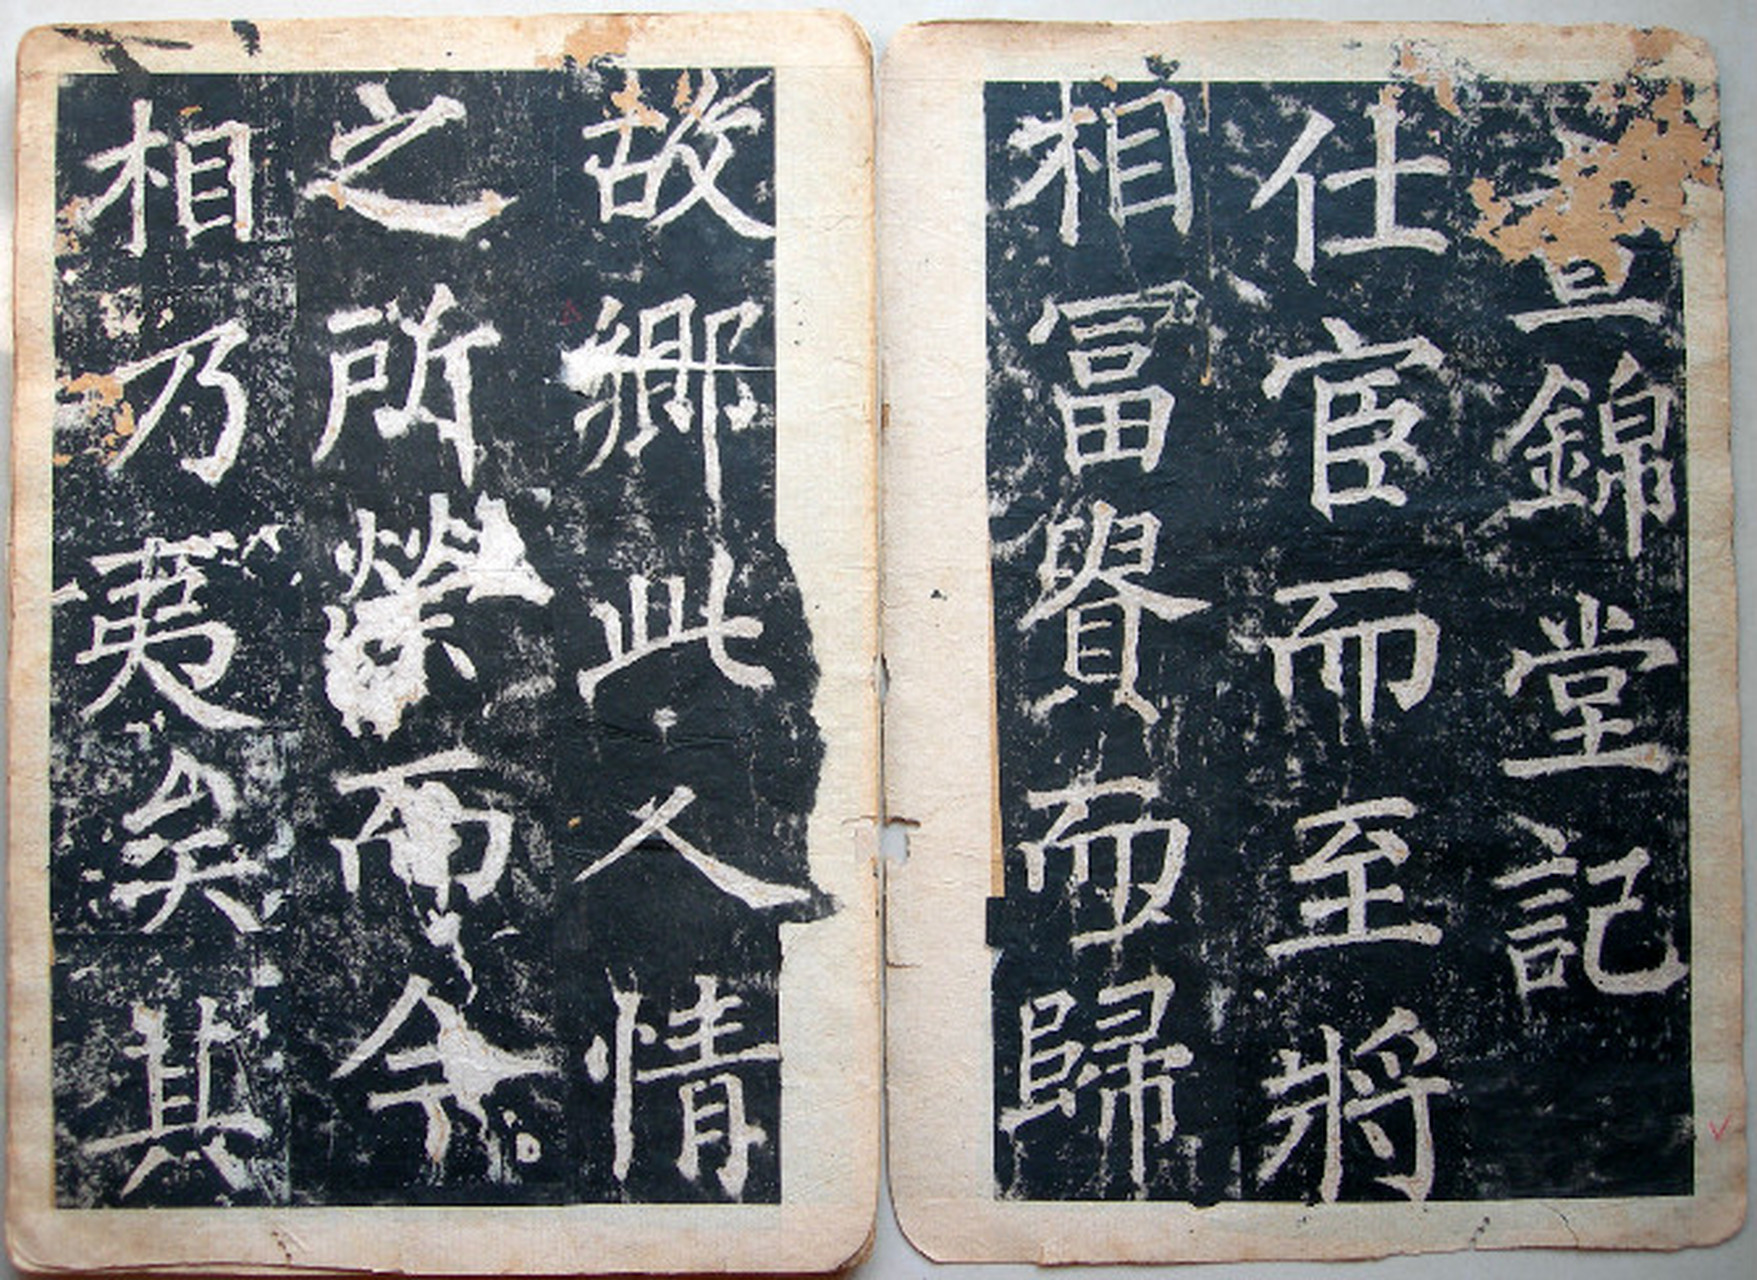 錦堂記
仕宦而至將
相冨貴而歸
故鄉此人情
之所榮而今
相乃夷矣其